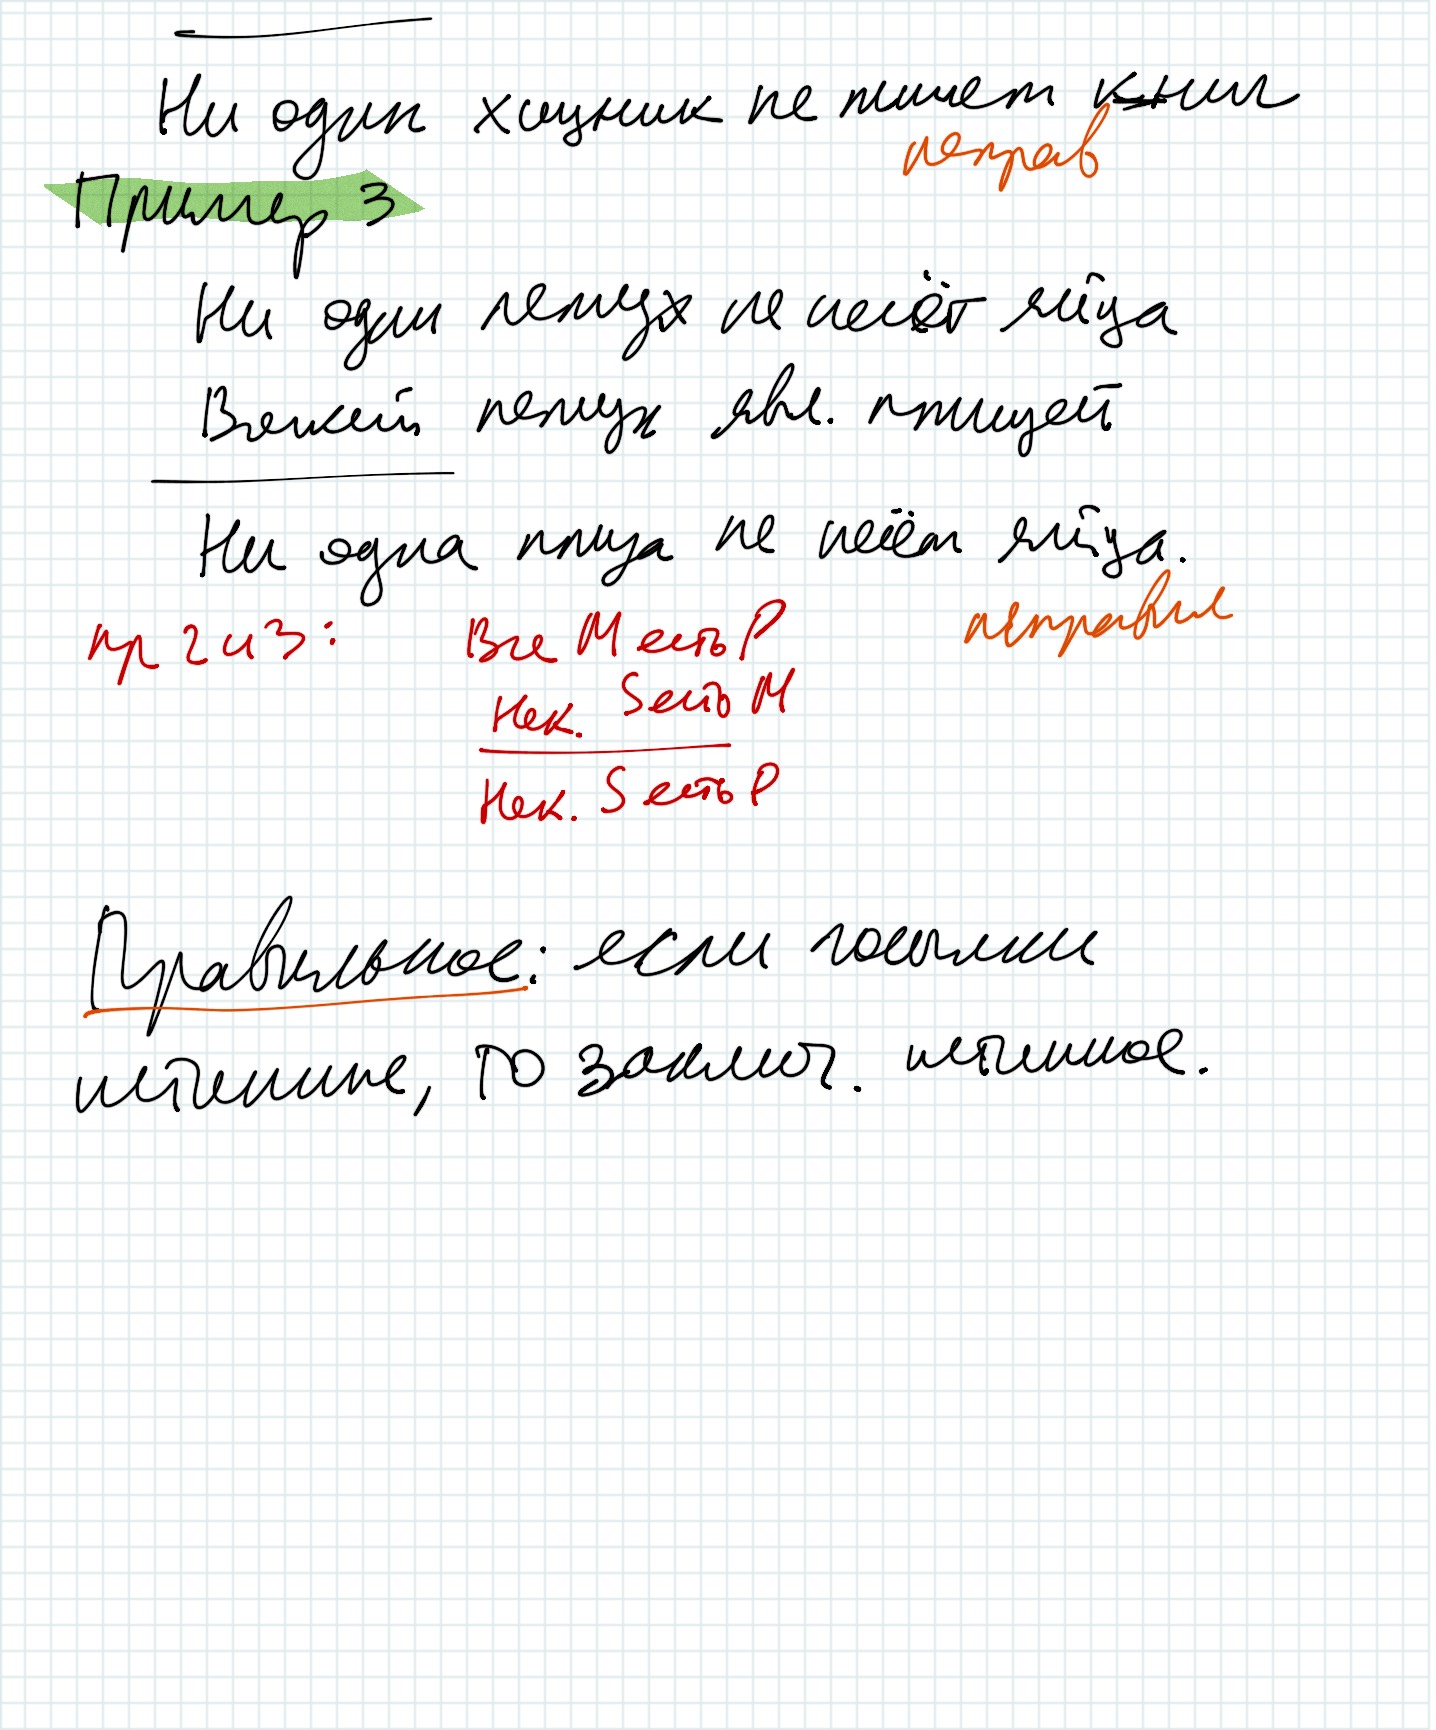 Ни один хищник не пишет книг
неправ
Пример 3
Ни один петух не несёт яйца
Всякий петух явл. птицей
Ни одна птица не несёт яйца.
неправил
пр 2 и 3:
Все М есть Р
Нек. S есть М
Нек. S есть Р
Правильное: если посылки
истинные, то заключ. истинное.